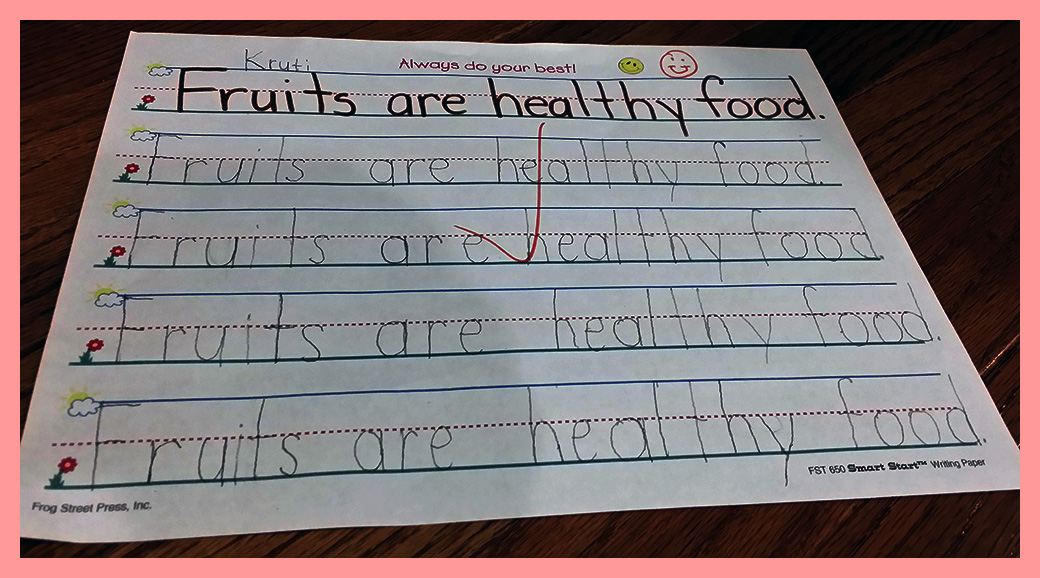 Kruti
Always do your best!
Fruits are healthy food.
Fruits are healthy food.
Fruits are healthy food.
Fruits are healthy food.
Fruits are healthy food.
FST 650 Smart Start™ Writing Paper
Frog Street Press, Inc.